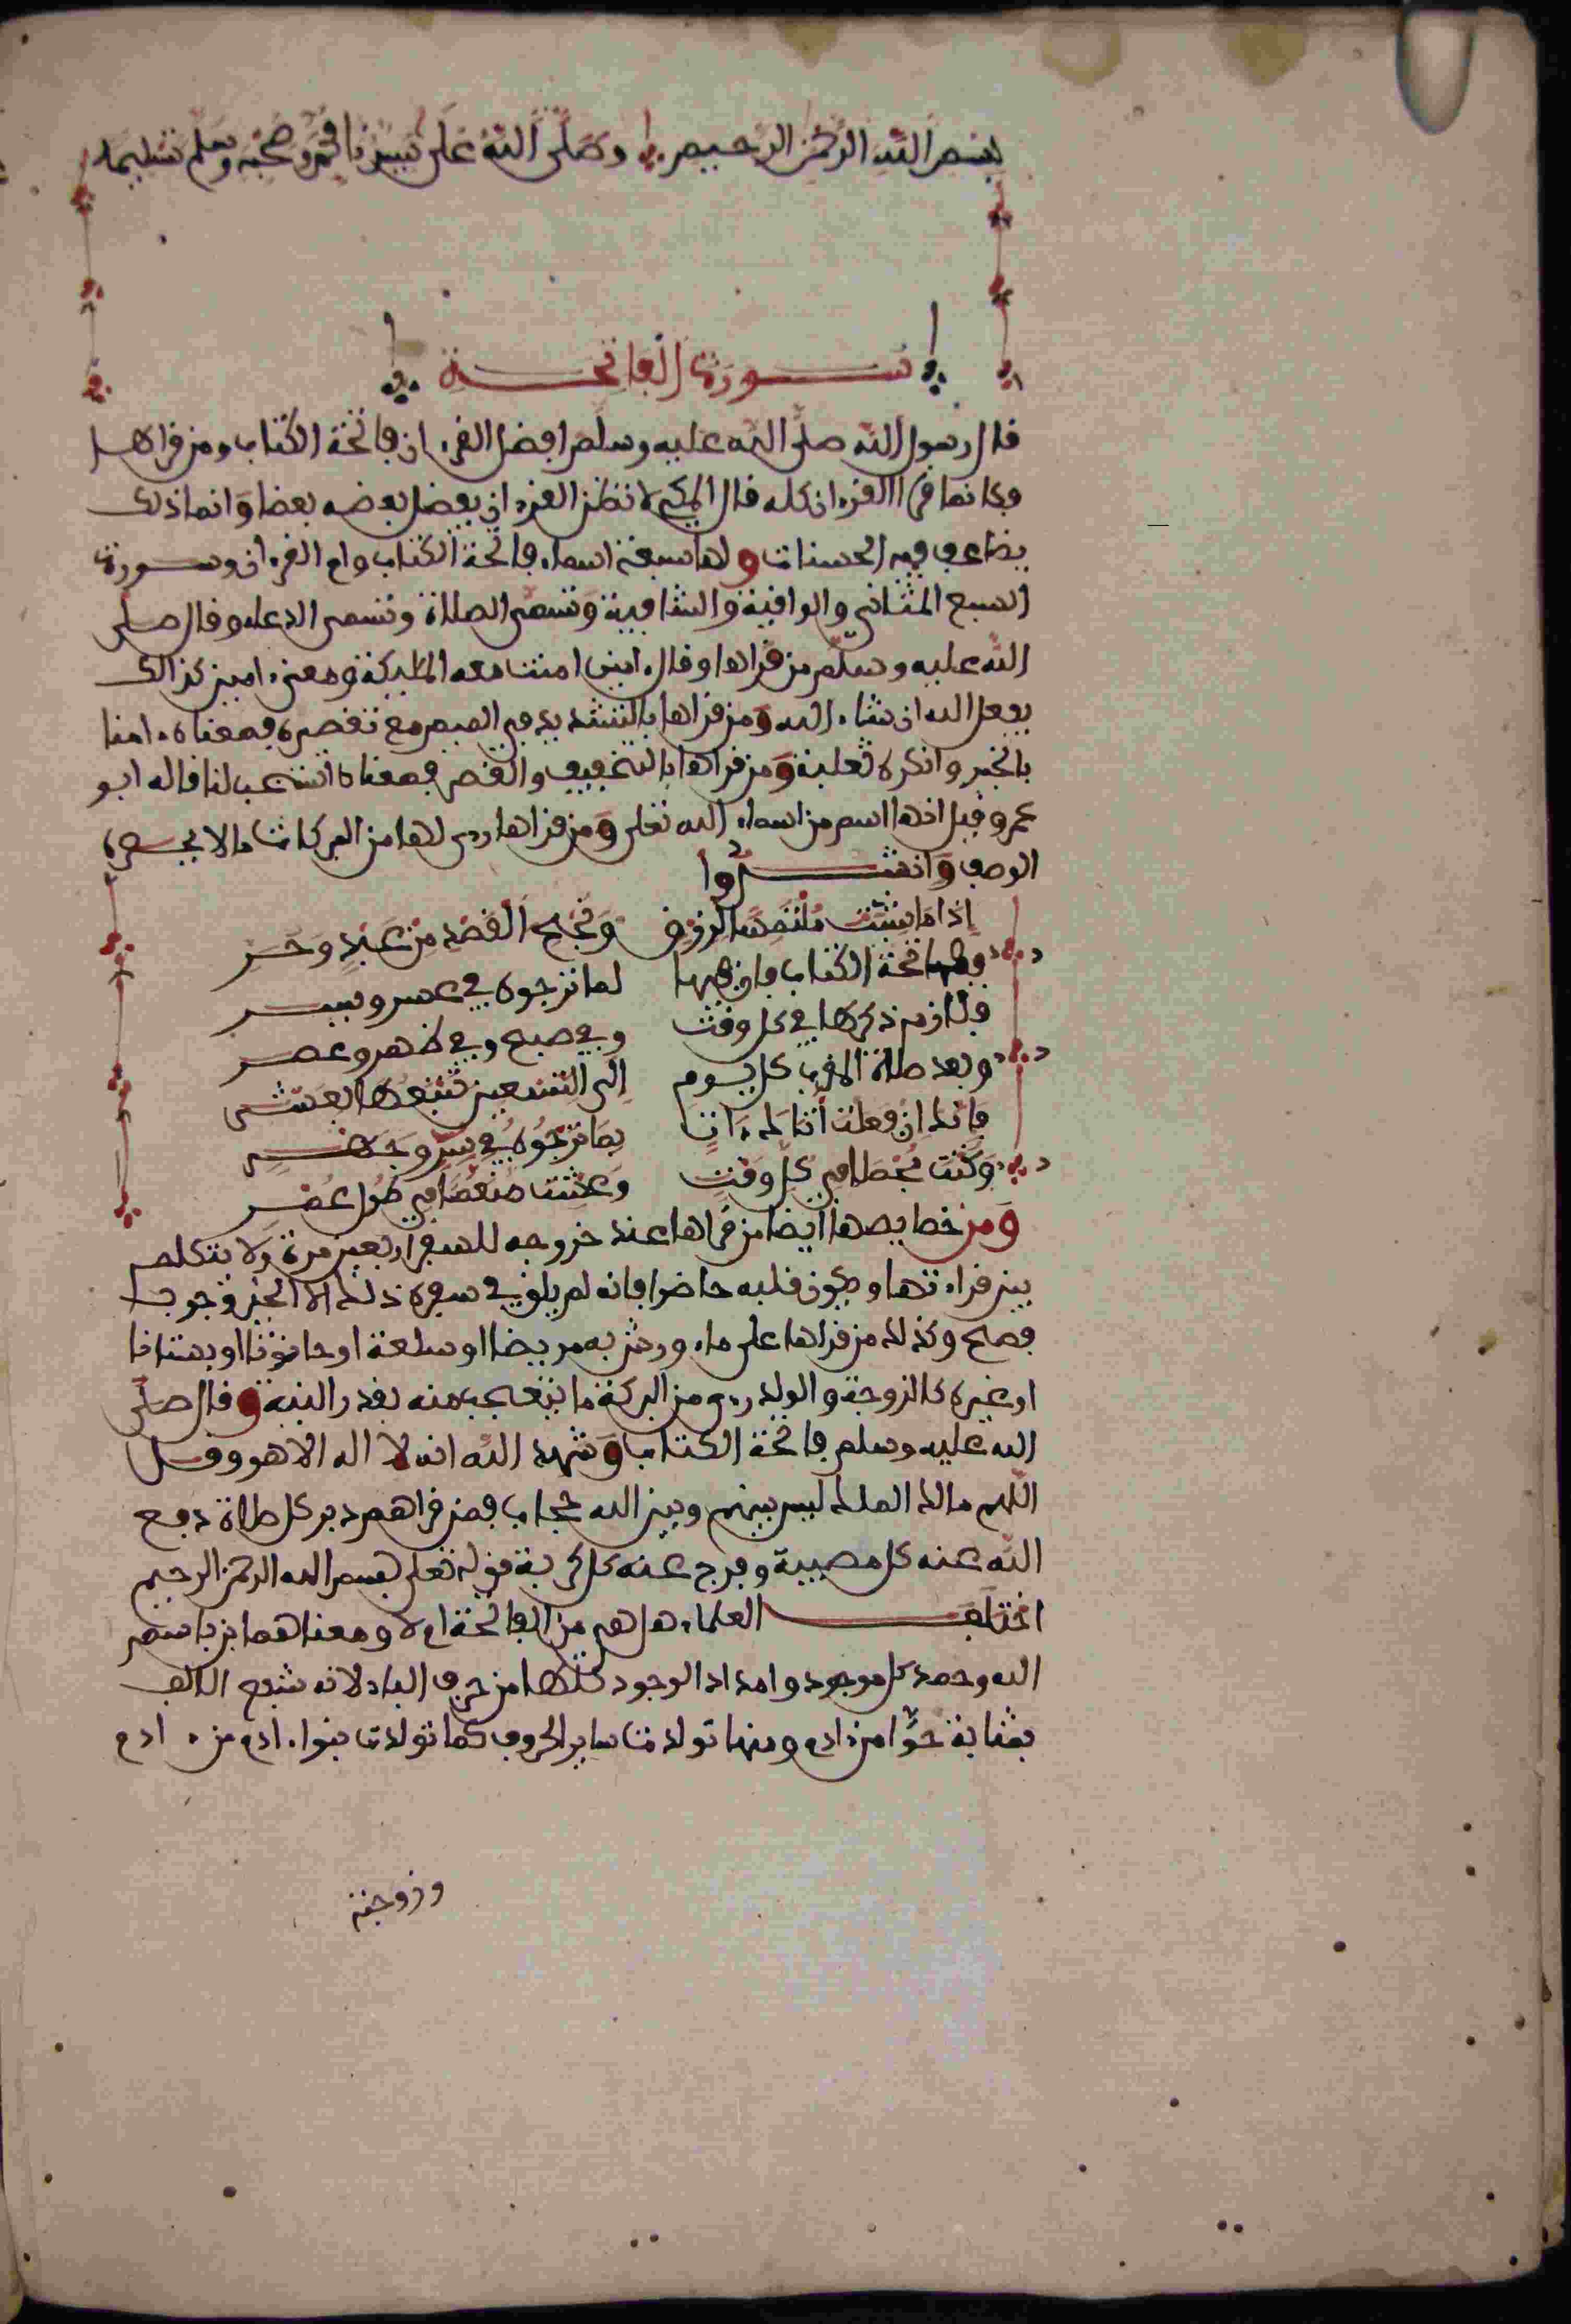 بسم الله الرحمن الرحيم وصلى الله على سيدنا محمد وصحبه وسلم تسليما
سورة الفاتحة
قال رسول الله صلى الله عليه وسلم افضل القرءان فاتحة الكتاب ومن قراها
فكانما قرا القرءان كله قال المكي لا تظن القرءان يفضل بعضه بعضا وانما ذلك
يضاعف فيه الحسنات ولها سبعة اسماء فاتحة الكتاب وام القرءان وسورة
السبع المثاني والوافية والشافية وتسمى الصلاة وتسمى الدعاء وقال صلى
الله عليه وسلم من قراها وقال ءامين امنت معه الملايكة ومعنى ءامين كذالك
يفعل الله ان شاء الله ومن قراها بالتشديد في الميم مع تقصيره فمعناه ءامنا
بالخير وانكره ثعلبة ومن قراها بالتخفيف والقصر فمعناه استجب لنا قاله ابو
عمر وقيل انها اسم من اسماء الله تعلى ومن قراها رءى لها من البركات ما لا يحصره
الوصف وانشدوا
اذا ما شئت ملتمسا لرزق ونجح القصد من عبد وحر
ففاتحة الكتاب فان فيها لما ترجوه في عسر ويسر
فلازم ذكرها في كل وقت وفي صبح وفي ظهر وعصر
وبعد صلاة المغرب كل يوم الى التسعين تتبعها بعشر
فانك ان فعلت أتاك ءات بما ترجوه في سر وجهر
وكنت في كل وقت وعشت منعما في طول عمر
ومن خصايصها ايضا من قراها عند خروجه للسفر اربعين مرة ولا يتكلم
بين قراءتها ويكون قلبه حاضرا فانه لم يلق في سفره ذلك الا الخير وجرب
فصح وكذلك من قراها على ماء ورش به مريضا او سلعة او حانوتا او بستانا
او غيره كالزوجة والولد رءى من البركة ما يتعجب منه بقدر النية وقال صلى
الله عليه وسلم فاتحة الكتاب وشهد الله انه لا اله الا هو وقل
اللهم مالك الملك ليس بينهم وبين الله حجاب فمن قراهم دبر كل صلاة دفع
الله عنه كل مصيبة وفرج عنه كل كربة قوله تعلى بسم الله الرحمن الرحيم
اختلف العلماء هل هي من الفاتحة ام لا ومعناها
الله وحمد كل موجود وامداد الوجود كلها من حرف الباء لانه شفع الالف
بمثابة حوا من ءادم ومنها تولدت ساير الحروف كما تولدت بنوا ءادم من ءادم
وزوجته